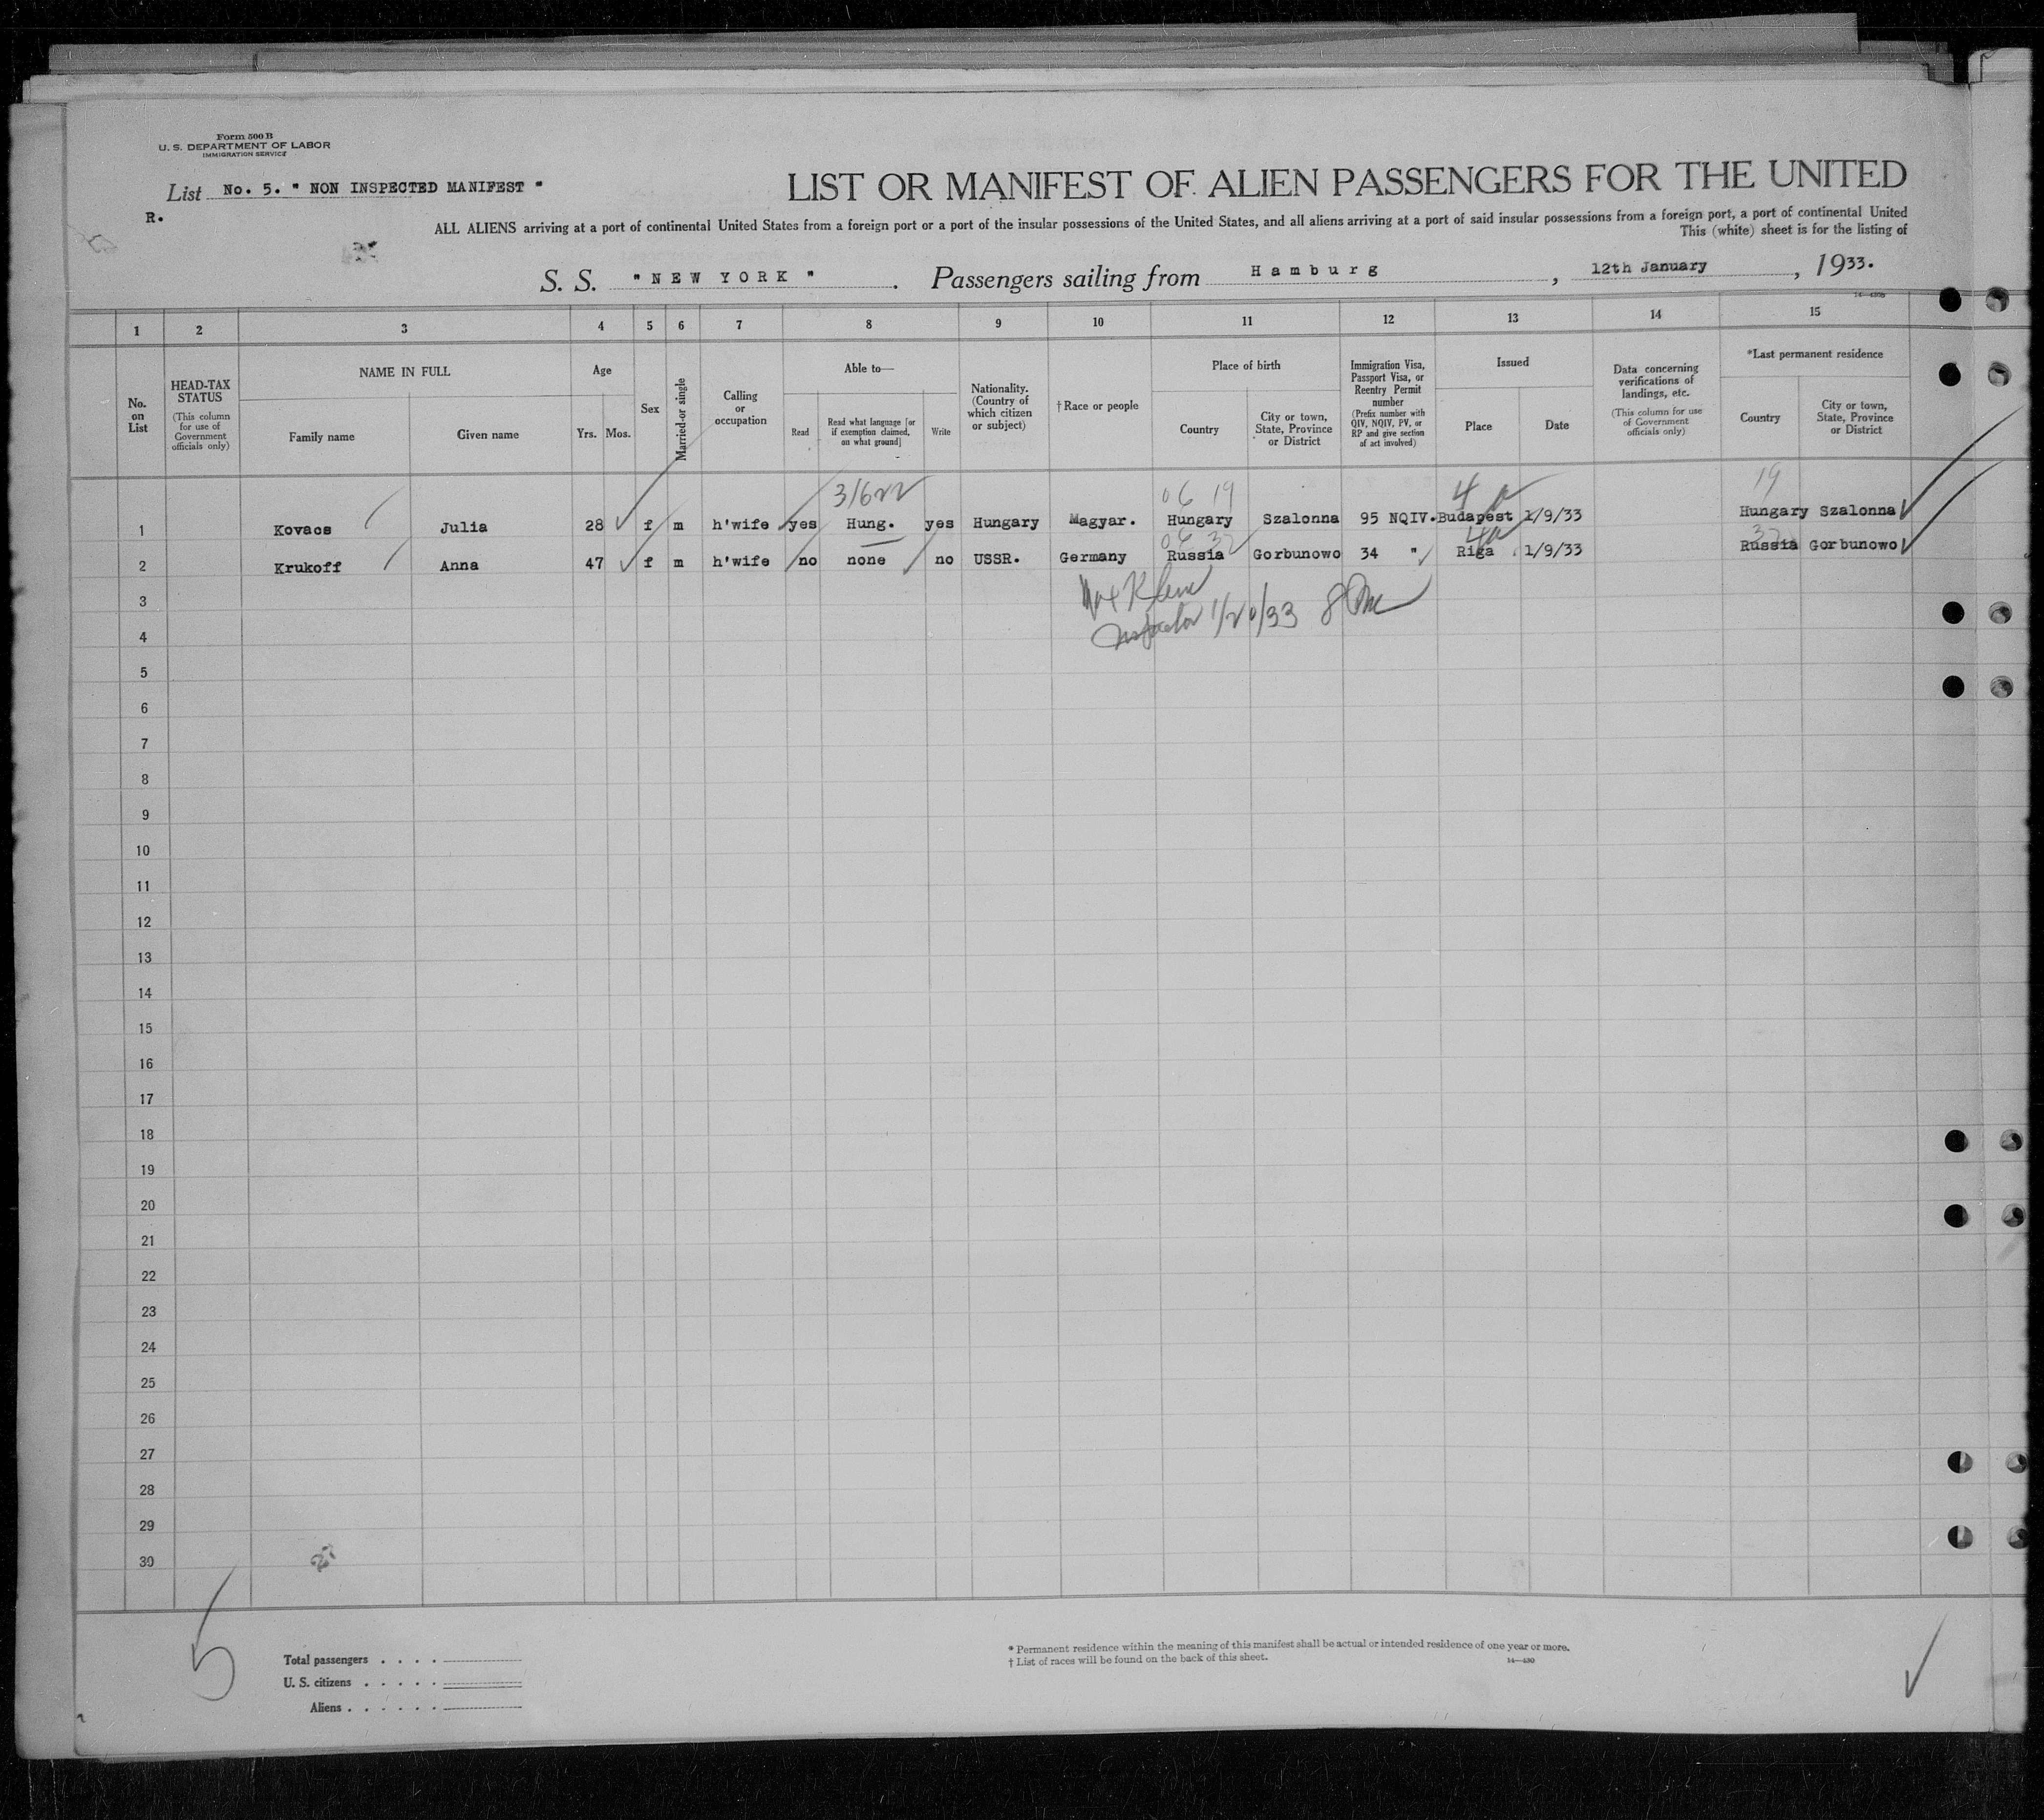 Form 500 B
U. S. DEPARTMENT OF LABOR
IMMIGRATION SERVICE
List No. 5. " NON INSPECTED MANIFEST "
R.
LIST OR MANIFEST OF ALIEN PASSENGERS FOR THE UNITED
ALL ALIENS arriving at a port of continental United States from a foreign port or a port of the insular possessions of the United States, and all aliens arriving at a port of said insular possessions from a foreign port, a port of continental United
This (white) sheet is for the listing of
S. S. " NEW YORK " . Passengers sailing from Hamburg , 12th January , 1933.
1 2 3 4 5 6 7 8 9 10 11 12 13 14 15
No. on List
HEAD-TAX STATUS
(This column for use of Government officials only)
NAME IN FULL
Family name Given name
Age
Yrs. Mos.
Sex
Married or single
Calling or occupation
Able to—
Read
Read what language [or if exemption claimed, on what ground]
Write
Nationality. (Country of which citizen or subject)
† Race or people
Place of birth
Country
City or town, State, Province or District
Immigration Visa, Passport Visa, or Reentry Permit number
(Prefix number with QIV, NQIV, PV, or RP and give section of act involved)
Issued
Place Date
Data concerning verifications of landings, etc.
(This column for use of Government officials only)
*Last permanent residence
Country
City or town, State, Province or District
06 19 4 19
1 Kovacs Julia 28 f m h'wife yes Hung. yes Hungary Magyar. Hungary Szalonna 95 NQIV. Budapest 1/9/33 Hungary Szalonna
06 32 32
2 Krukoff Anna 47 f m h'wife no none no USSR. Germany Russia Gorbunowo 34 " Riga 1/9/33 Russia Gorbunowo
3
Inspector 1/20/33
4
5
6
7
8
9
10
11
12
13
14
15
16
17
18
19
20
21
22
23
24
25
26
27
28
29
30
5
Total passengers . . . .
U. S. citizens . . . . .
Aliens . . . . . .
* Permanent residence within the meaning of this manifest shall be actual or intended residence of one year or more.
† List of races will be found on the back of this sheet.
14—430